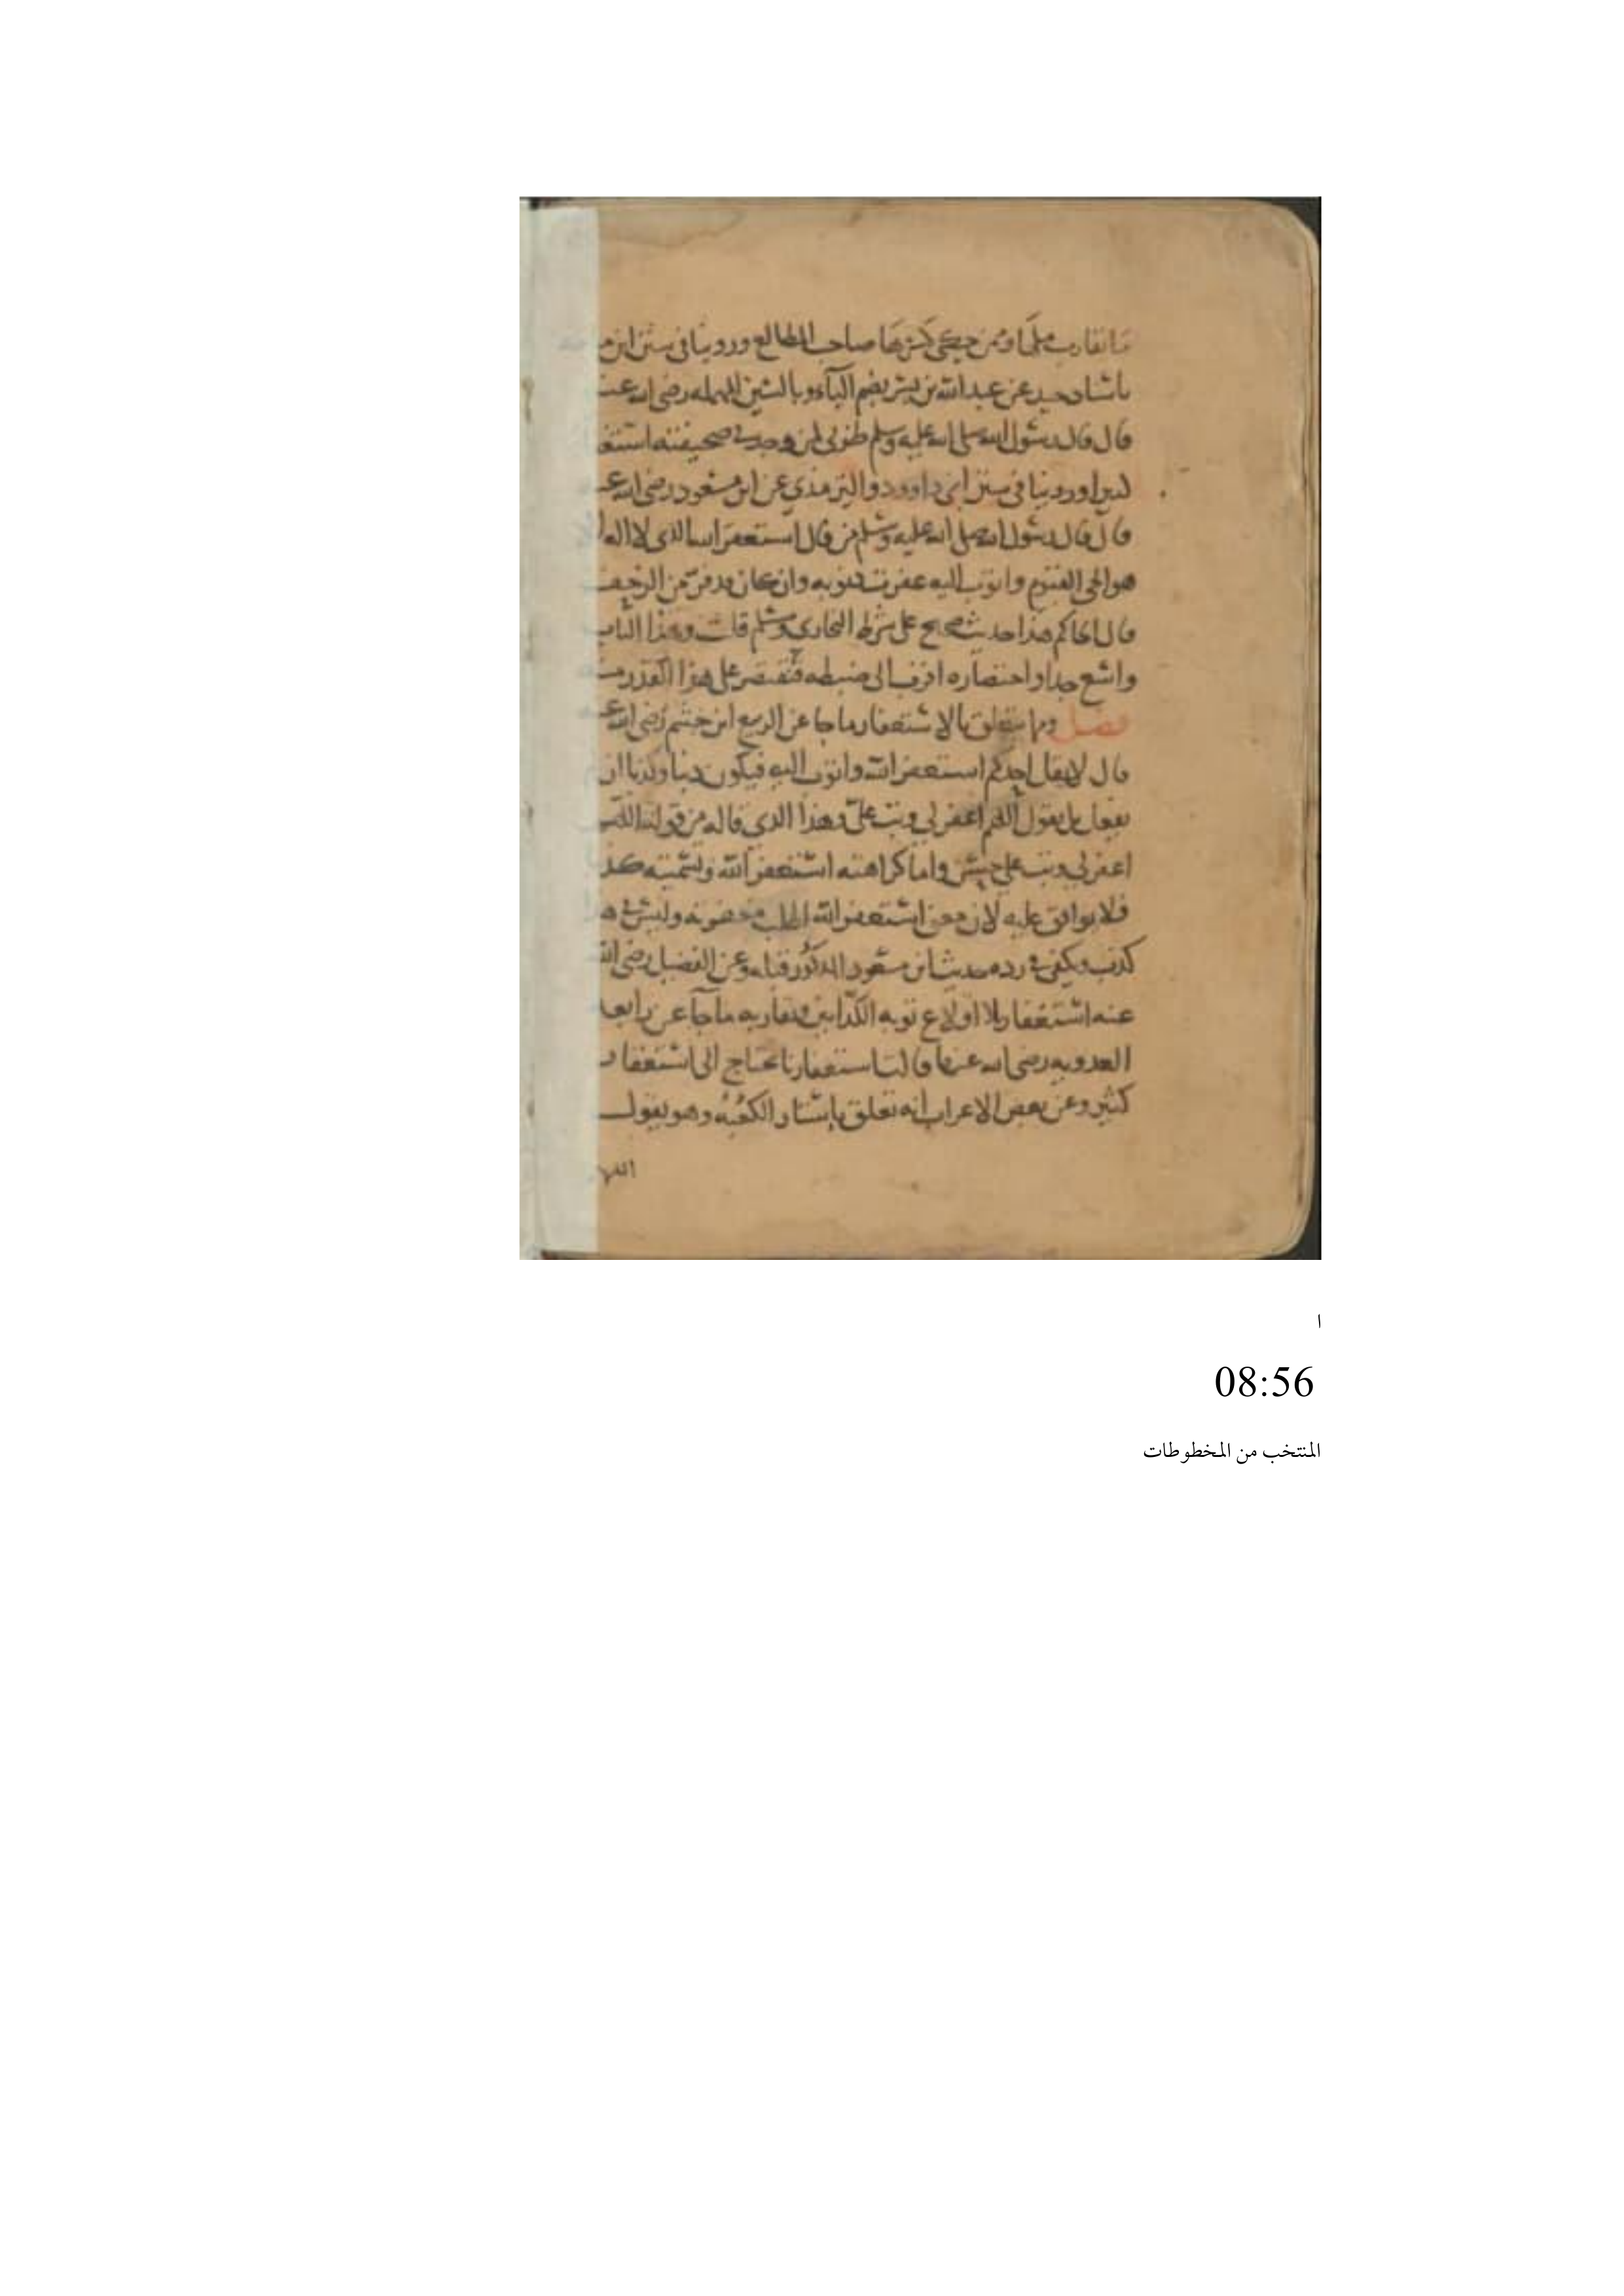 ما تقارب ملئها وممن حكى كسرها صاحب المطالع وروينا في سنن ابن
باسناد جيد عن عبد الله بن بسر بضم الباء وبالسين المهمله رضي الله عنه
قال قال رسول الله صلى الله عليه وسلم طوبى لمن وجد في صحيفته استغفا
كثيرا وروينا في سنن ابي داوود والترمذي عن ابن مسعود رضي الله عنه
قال قال رسول الله صلى الله عليه وسلم من قال استغفر الله الذي لا اله الا
هو الحي القيوم واتوب اليه غفرت ذنوبه وان كان قد فر من الزحف
قال الحاكم هذا حديث صحيح على شرط البخاري ومسلم قلت وهذا الباب
واسع جدا واختصاره اقرب الى ضبطه فنقتصر على هذا القدر منه
فصل ومما يتعلق بالاستغفار ما جا عن الربيع ابن خثيم رضي الله عنه
قال لا يقل احدكم استغفر الله واتوب اليه فيكون ذنبا وكذبا ان
يفعل بل يقول اللهم اغفر لي وتب علي وهذا الذي قاله من قوله اللهم
اغفر لي وتب علي حسن واما كراهته استغفر الله وتسميته كذبا
فلا يوافق عليه لان معنى استغفر الله اطلب مغفرته وليس في هذا
كذب ويكفي في رده حديث ابن مسعود المذكور قبله وعن الفضيل رضي الله
عنه استغفار بلا اقلاع توبه الكذابين ويقاربه ما جآ عن رابعه
العدويه رضي الله عنها قالت استغفارنا يحتاج الى استغفار
كثير وعن بعض الاعراب انه تعلق باستار الكعبه وهو يقول
اللهم
ا
08:56
المنتخب من المخطوطات